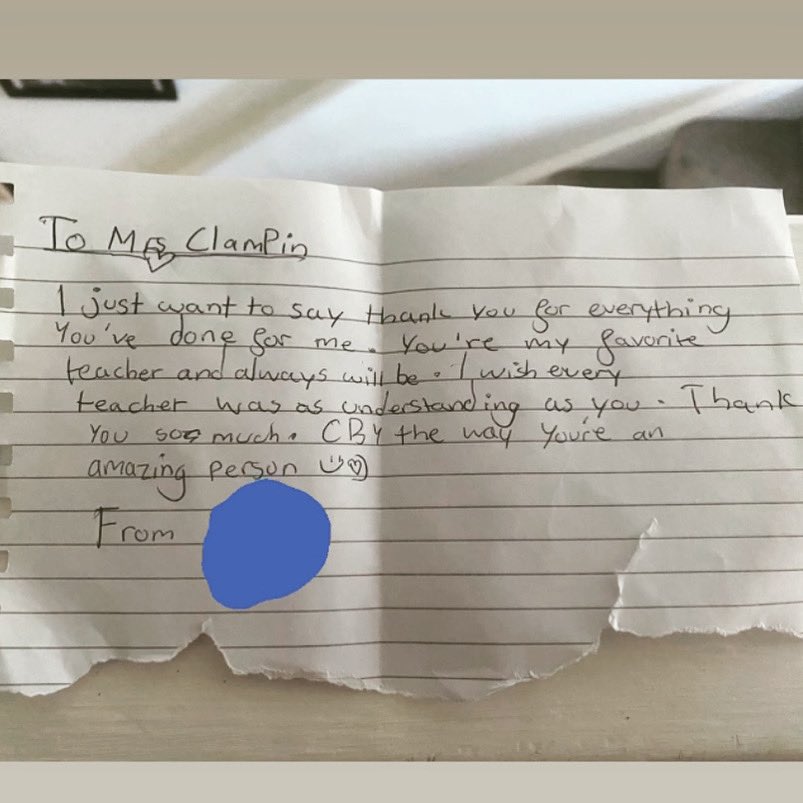 To Mrs Clampin
I just want to say thank you for everything
You've done for me. You're my favorite
teacher and always will be. I wish every
teacher was as understanding as you. Thank
You soo much. (By the way you're an
amazing person ☺♡)
From